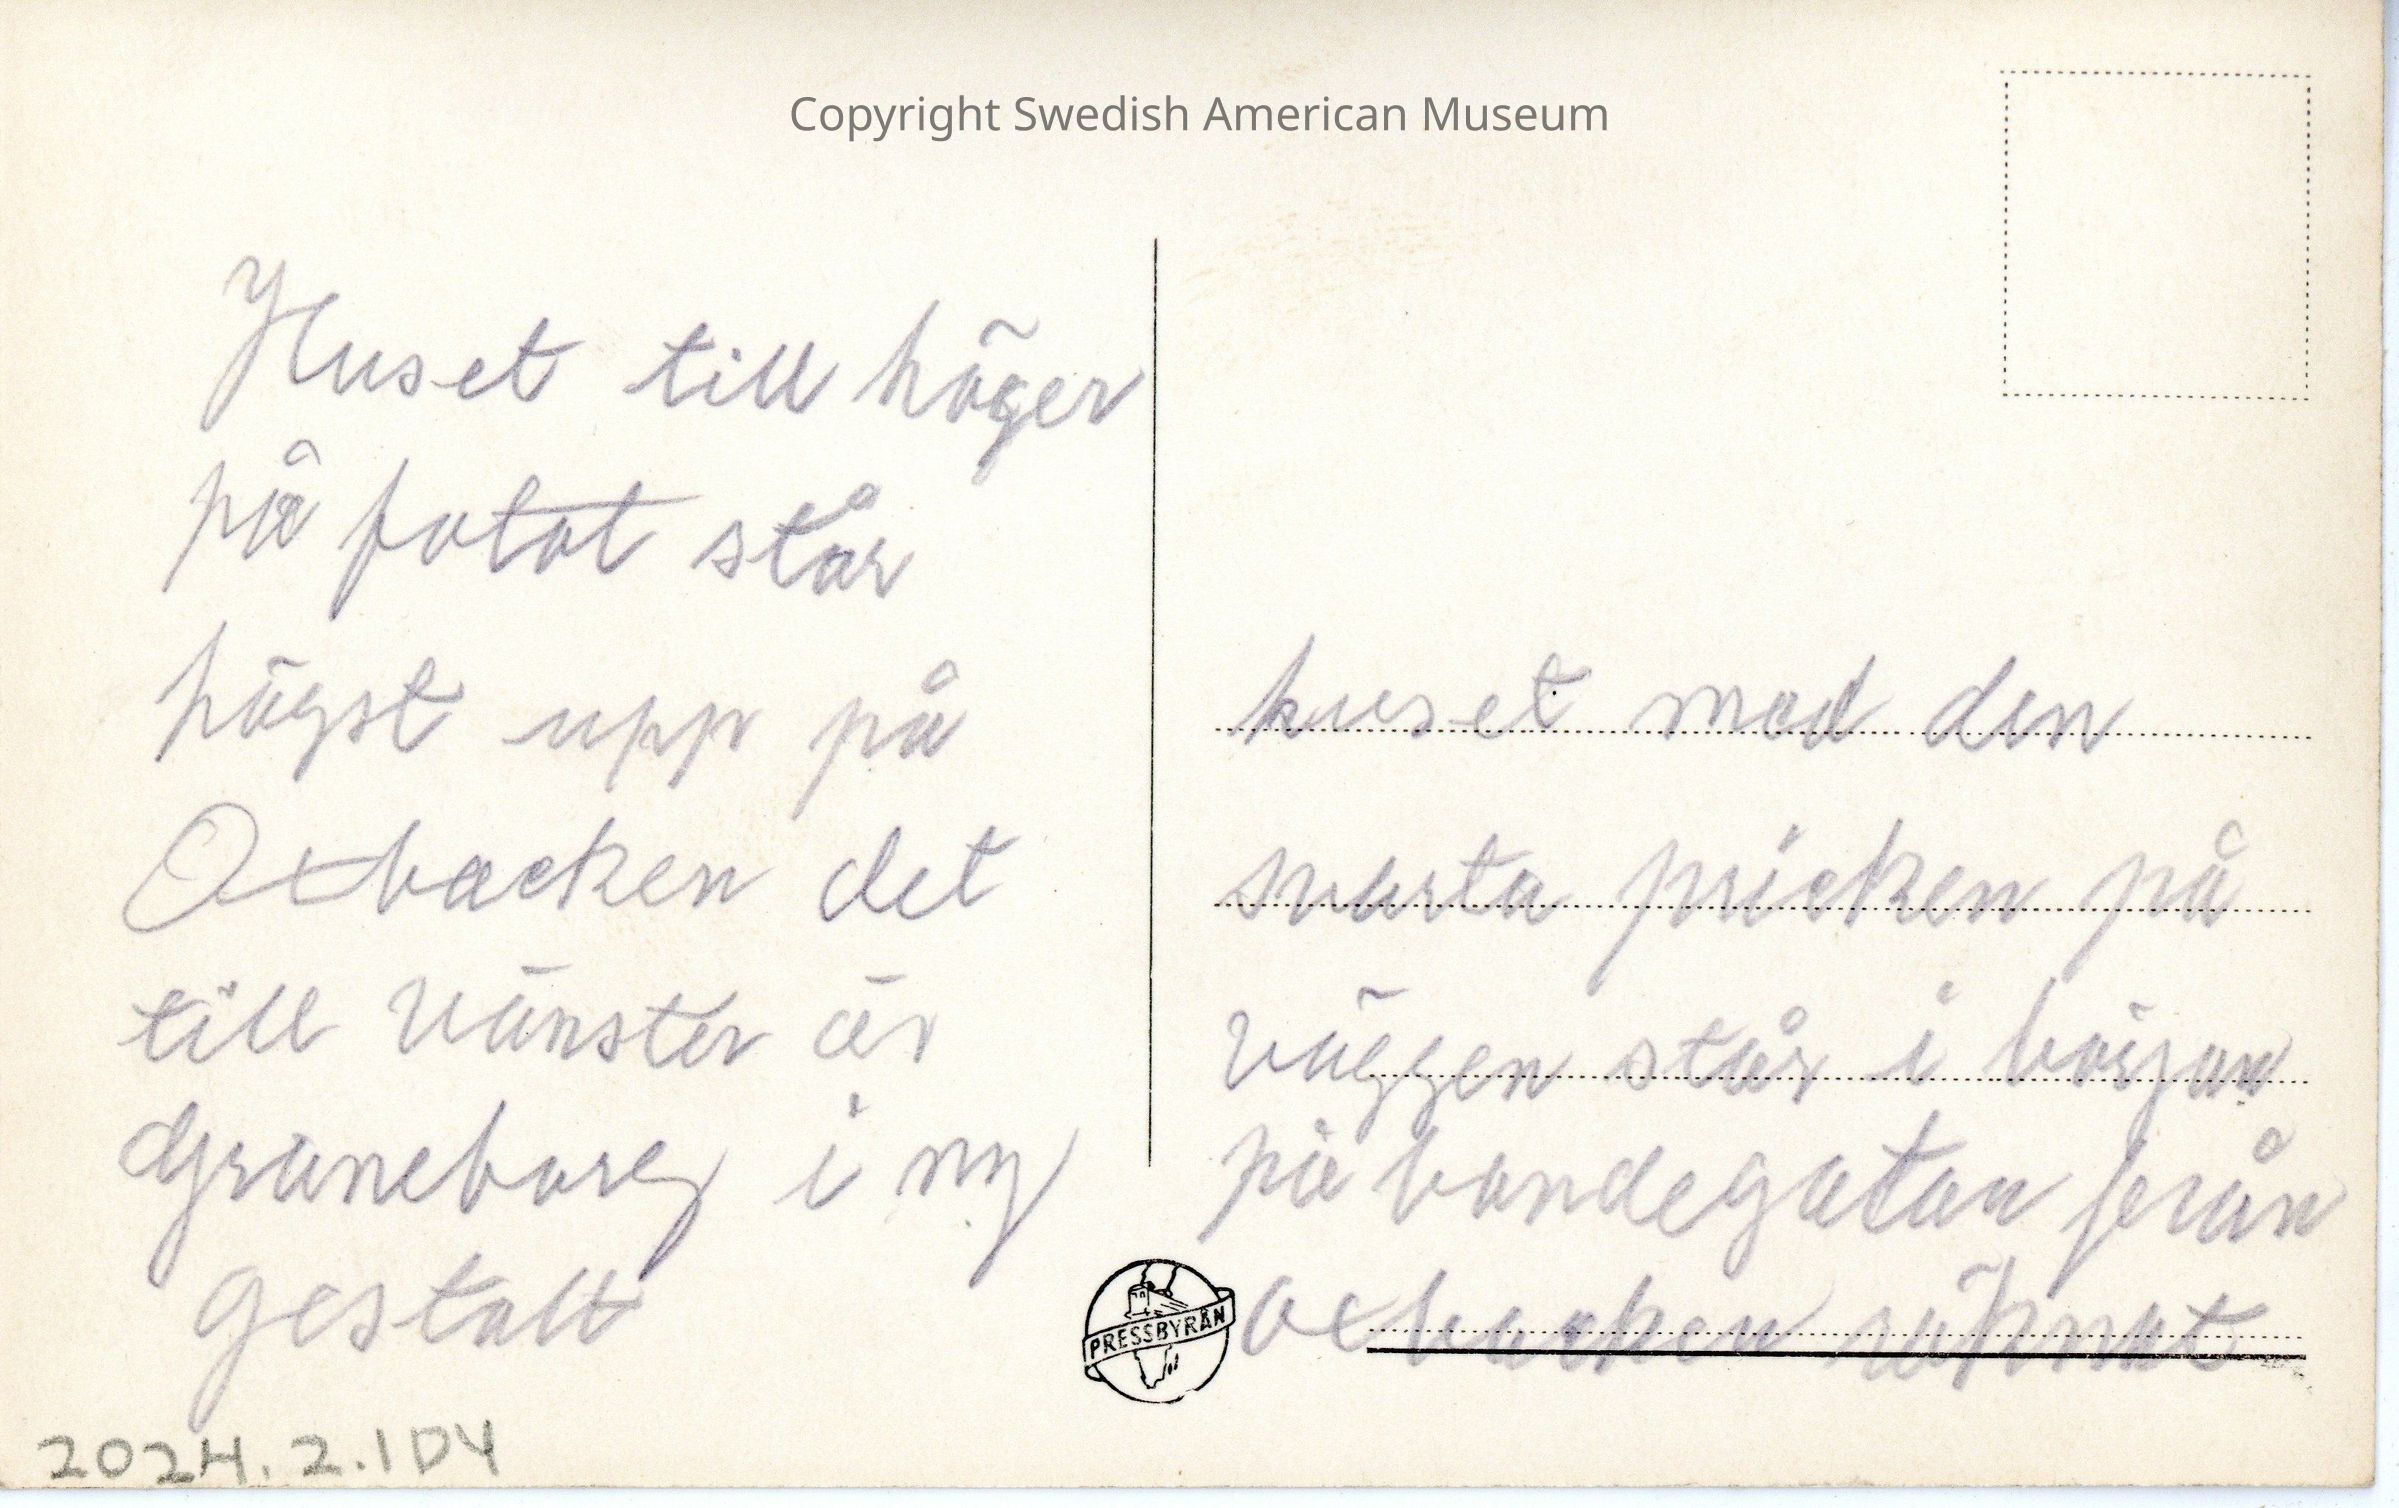 Copyright Swedish American Museum
Huset till höger
på fotot står
högst upp på
Oxbacken det
till vänster är
Graneborg i ny
gestalt
huset med den
svarta pricken på
väggen står i början
på bondegatan från
oxbacken räknat
PRESSBYRÅN
2024.2.1DY